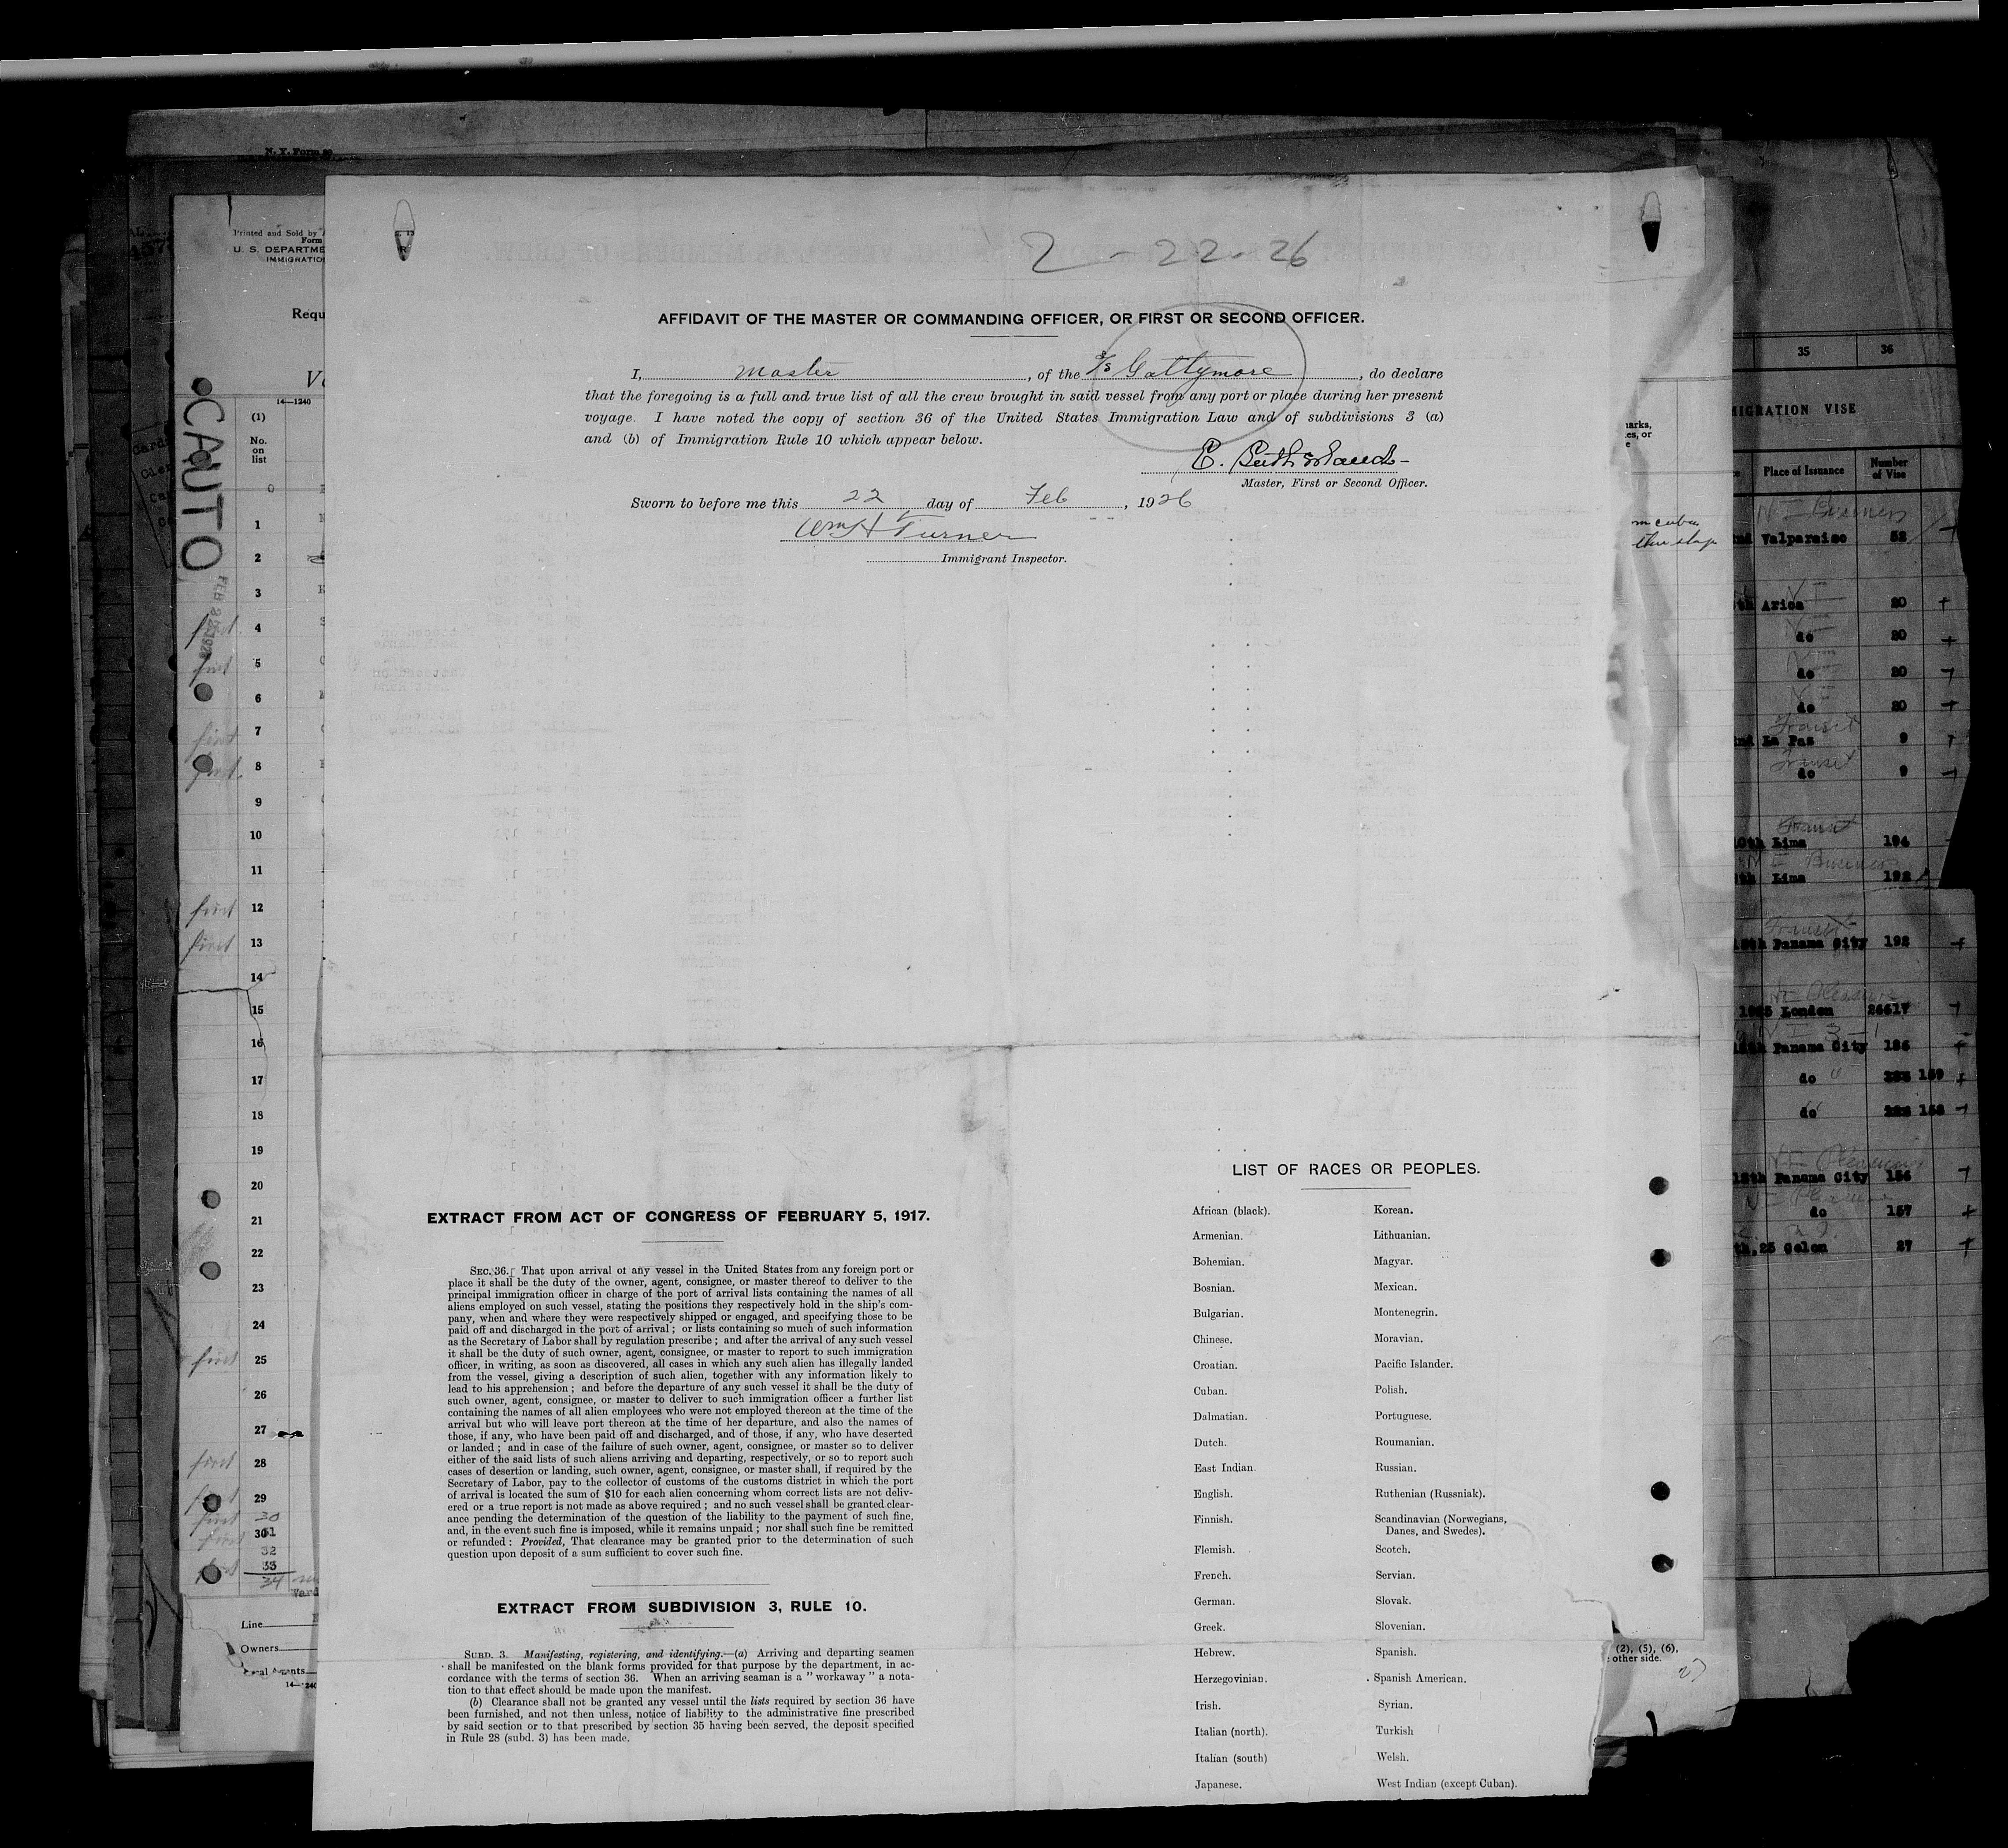 N. Y. Form 89
Printed and Sold by
Form
U. S. DEPARTME
IMMIGRATION
Requ
14—1240
(1)
No.
on
list
CAUTO
0
1
2
3
4
5
6
7
8
9
10
11
12
13
14
15
16
17
18
19
20
21
22
23
24
25
26
27
28
29
30
31
32
33
34
first
first
first
first
first
Line
Owners
2 - 22 - 26
AFFIDAVIT OF THE MASTER OR COMMANDING OFFICER, OR FIRST OR SECOND OFFICER.
I, Master, of the S/s Gattymore, do declare
that the foregoing is a full and true list of all the crew brought in said vessel from any port or place during her present
voyage. I have noted the copy of section 36 of the United States Immigration Law and of subdivisions 3 (a)
and (b) of Immigration Rule 10 which appear below.
E.
Master, First or Second Officer.
Sworn to before me this 22 day of Feb, 1926
Wm H Turner
Immigrant Inspector.
EXTRACT FROM ACT OF CONGRESS OF FEBRUARY 5, 1917.
SEC. 36. That upon arrival of any vessel in the United States from any foreign port or
place it shall be the duty of the owner, agent, consignee, or master thereof to deliver to the
principal immigration officer in charge of the port of arrival lists containing the names of all
aliens employed on such vessel, stating the positions they respectively hold in the ship's com-
pany, when and where they were respectively shipped or engaged, and specifying those to be
paid off and discharged in the port of arrival; or lists containing so much of such information
as the Secretary of Labor shall by regulation prescribe; and after the arrival of any such vessel
it shall be the duty of such owner, agent, consignee, or master to report to such immigration
officer, in writing, as soon as discovered, all cases in which any such alien has illegally landed
from the vessel, giving a description of such alien, together with any information likely to
lead to his apprehension; and before the departure of any such vessel it shall be the duty of
such owner, agent, consignee, or master to deliver to such immigration officer a further list
containing the names of all alien employees who were not employed thereon at the time of the
arrival but who will leave port thereon at the time of her departure, and also the names of
those, if any, who have been paid off and discharged, and of those, if any, who have deserted
or landed; and in case of the failure of such owner, agent, consignee, or master so to deliver
either of the said lists of such aliens arriving and departing, respectively, or so to report such
cases of desertion or landing, such owner, agent, consignee, or master shall, if required by the
Secretary of Labor, pay to the collector of customs of the customs district in which the port
of arrival is located the sum of $10 for each alien concerning whom correct lists are not deliv-
ered or a true report is not made as above required; and no such vessel shall be granted clear-
ance pending the determination of the question of the liability to the payment of such fine,
and, in the event such fine is imposed, while it remains unpaid; nor shall such fine be remitted
or refunded: Provided, That clearance may be granted prior to the determination of such
question upon deposit of a sum sufficient to cover such fine.
EXTRACT FROM SUBDIVISION 3, RULE 10.
SUBD. 3. Manifesting, registering, and identifying.—(a) Arriving and departing seamen
shall be manifested on the blank forms provided for that purpose by the department, in ac-
cordance with the terms of section 36. When an arriving seaman is a "workaway" a nota-
tion to that effect should be made upon the manifest.
(b) Clearance shall not be granted any vessel until the lists required by section 36 have
been furnished, and not then unless, notice of liability to the administrative fine prescribed
by said section or to that prescribed by section 35 having been served, the deposit specified
in Rule 28 (subd. 3) has been made.
LIST OF RACES OR PEOPLES.
African (black).
Armenian.
Bohemian.
Bosnian.
Bulgarian.
Chinese.
Croatian.
Cuban.
Dalmatian.
Dutch.
East Indian.
English.
Finnish.
Flemish.
French.
German.
Greek.
Hebrew.
Herzegovinian.
Irish.
Italian (north).
Italian (south)
Japanese.
Korean.
Lithuanian.
Magyar.
Mexican.
Montenegrin.
Moravian.
Pacific Islander.
Polish.
Portuguese.
Roumanian.
Russian.
Ruthenian (Russniak).
Scandinavian (Norwegians,
Danes, and Swedes).
Scotch.
Servian.
Slovak.
Slovenian.
Spanish.
Spanish American.
Syrian.
Turkish
Welsh.
West Indian (except Cuban).
(2), (5), (6),
other side.
35 36
MIGRATION VISE
Place of Issuance
Number
of Vise
Valparaiso 52
Arica 20
do 20
do 20
do 20
La Paz 9
do 9
Lima 194
Lima 192
Panama City 192
London 26617
Panama City 186
do 159
do 158
Panama City 156
do 157
25 Colon 27